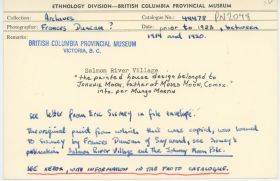 ETHNOLOGY DIVISION—BRITISH COLUMBIA PROVINCIAL MUSEUM
Collection: Archives Catalogue No.: PN2048
Photographer: Frances Duncan? Date: prior to 1923, between 1914 and 1920.
BRITISH COLUMBIA PROVINCIAL MUSEUM
VICTORIA, B. C.
Salmon River Village
"the painted house design belonged to
Johnnie Moon, father of Moses Moon, Comox"
info per Mungo Martin
see letter from Eric Sismey in file envelope.
The original print from which this was copied, was loaned
to Sismey by Frances Duncan of Sayward, see Sismey's
publication Salmon River Village and The Johnny Moon Pole.
SEE XEROX, WITH INFORMATION IN THE PHOTO CATALOGUE.